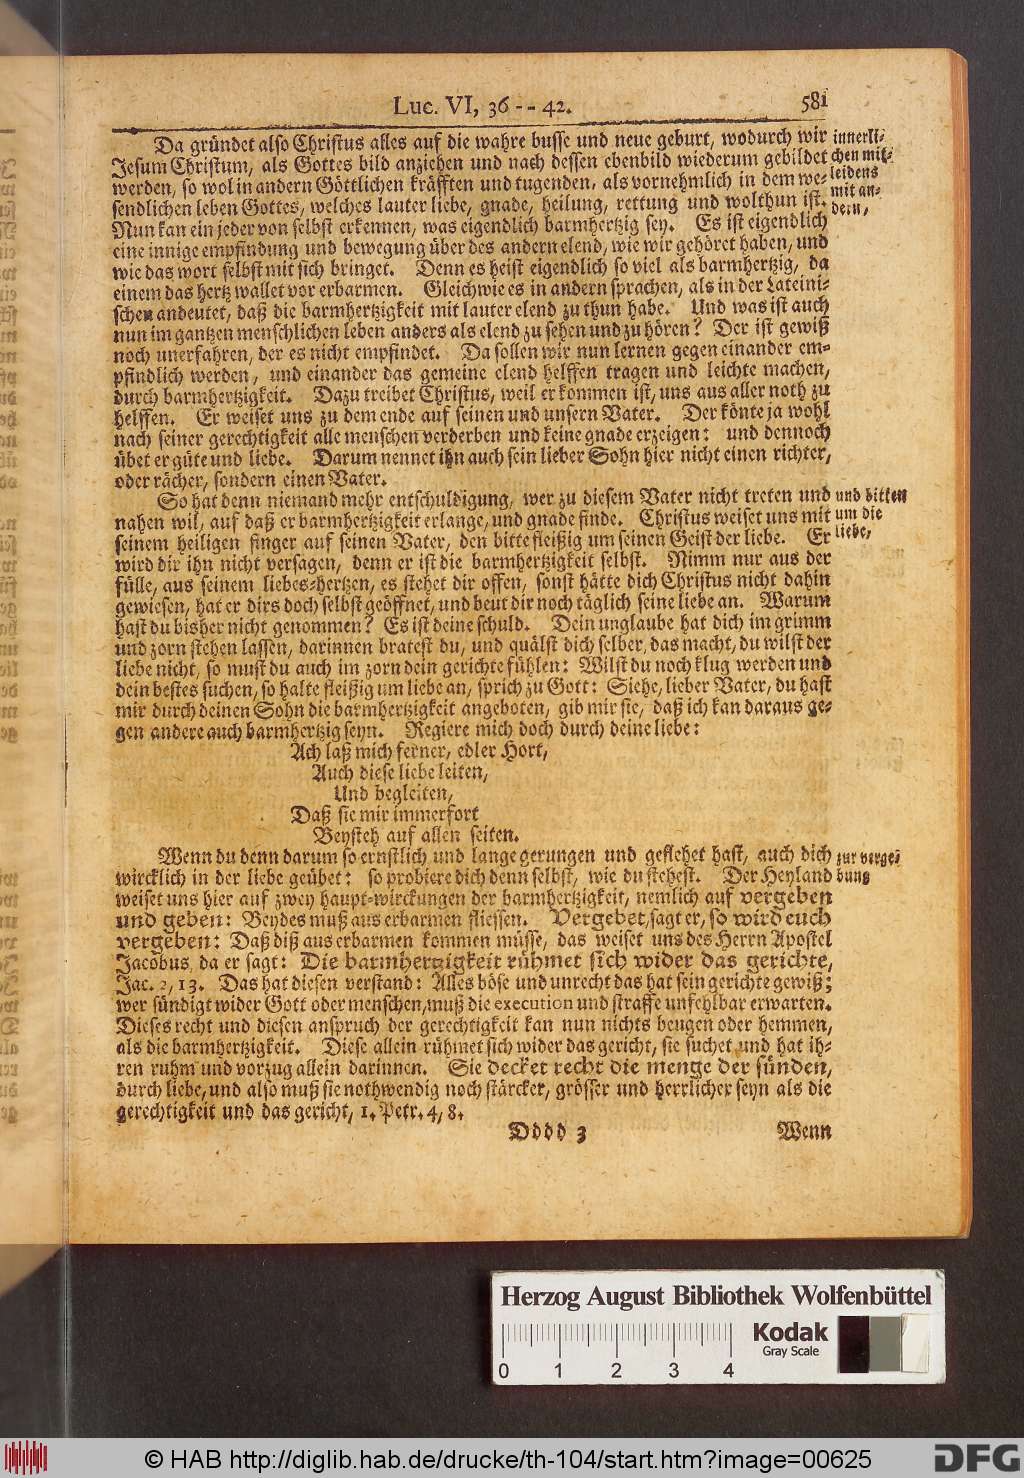 Luc. VI, 36 -- 42. 581
Da gründet also Christus alles auf die wahre busse und neue geburt, wodurch wir innerli-
Jesum Christum, als Gottes bild anziehen und nach dessen ebenbild wiederum gebildet chen mit-
werden, so wol in andern Göttlichen kräfften und tugenden, als vornehmlich in dem we- leidens
sendlichen leben Gottes, welches lauter liebe, gnade, heilung, rettung und wolthun ist. mit an-
dern,
Nun kan ein jeder von selbst erkennen, was eigendlich barmhertzig sey. Es ist eigendlich
eine innige empfindung und bewegung über des andern elend, wie wir gehöret haben, und
wie das wort selbst mit sich bringet. Denn es heist eigendlich so viel als barmhertzig, da
einem das hertz wallet vor erbarmen. Gleichwie es in andern sprachen, als in der Lateini-
schen andeutet, daß die barmhertzigkeit mit lauter elend zu thun habe. Und was ist auch
nun im gantzen menschlichen leben anders als elend zu sehen und zu hören? Der ist gewiß
noch unerfahren, der es nicht empfindet. Da sollen wir nun lernen gegen einander em-
pfindlich werden, und einander das gemeine elend helffen tragen und leichte machen,
durch barmhertzigkeit. Dazu treibet Christus, weil er kommen ist, uns aus aller noth zu
helffen. Er weiset uns zu dem ende auf seinen und unsern Vater. Der könte ja wohl
nach seiner gerechtigkeit alle menschen verderben und keine gnade erzeigen: und dennoch
übet er güte und liebe. Darum nennet ihn auch sein lieber Sohn hier nicht einen richter,
oder rächer, sondern einen Vater.
So hat denn niemand mehr entschuldigung, wer zu diesem Vater nicht treten und und bitten
nahen wil, auf daß er barmhertzigkeit erlange, und gnade finde. Christus weiset uns mit um die
seinem heiligen finger auf seinen Vater, den bitte fleißig um seinen Geist der liebe. Er liebe,
wird dir ihn nicht versagen, denn er ist die barmhertzigkeit selbst. Nimm nur aus der
fülle, aus seinem liebes-hertzen, es stehet dir offen, sonst hätte dich Christus nicht dahin
gewiesen, hat er dirs doch selbst geöffnet, und beut dir noch täglich seine liebe an. Warum
hast du bisher nicht genommen? Es ist deine schuld. Dein unglaube hat dich im grimm
und zorn stehen lassen, darinnen bratest du, und quälst dich selber, das macht, du wilst der
liebe nicht, so must du auch im zorn dein gerichte fühlen: Wilst du noch klug werden und
dein bestes suchen, so halte fleißig um liebe an, sprich zu Gott: Siehe, lieber Vater, du hast
mir durch deinen Sohn die barmhertzigkeit angeboten, gib mir sie, daß ich kan daraus ge-
gen andere auch barmhertzig seyn. Regiere mich doch durch deine liebe:
Ach laß mich ferner, edler Hort,
Auch diese liebe leiten,
Und begleiten,
Daß sie mir immerfort
Beysteh auf allen seiten.
Wenn du denn darum so ernstlich und lange gerungen und geflehet hast, auch dich zur verge-
wircklich in der liebe geübet: so probiere dich denn selbst, wie du stehest. Der Heyland bung
weiset uns hier auf zwey haupt-wirckungen der barmhertzigkeit, nemlich auf vergeben
und geben: Beydes muß aus erbarmen fliessen. Vergebet, sagt er, so wird euch
vergeben: Daß diß aus erbarmen kommen müsse, das weiset uns des Herrn Apostel
Jacobus, da er sagt: Die barmhertzigkeit rühmet sich wider das gerichte,
Jac. 2, 13. Das hat diesen verstand: Alles böse und unrecht das hat sein gerichte gewiß;
wer sündigt wider Gott oder menschen, muß die execution und straffe unfehlbar erwarten.
Dieses recht und diesen anspruch der gerechtigkeit kan nun nichts beugen oder hemmen,
als die barmhertzigkeit. Diese allein rühmet sich wider das gericht, sie suchet und hat ih-
ren ruhm und vorzug allein darinnen. Sie decket recht die menge der sünden,
durch liebe, und also muß sie nothwendig noch stärcker, grösser und herrlicher seyn als die
gerechtigkeit und das gericht, 1. Petr. 4, 8.
Dddd 3 Wenn
Herzog August Bibliothek Wolfenbüttel
Kodak
Gray Scale
0 1 2 3 4
© HAB http://diglib.hab.de/drucke/th-104/start.htm?image=00625
DFG